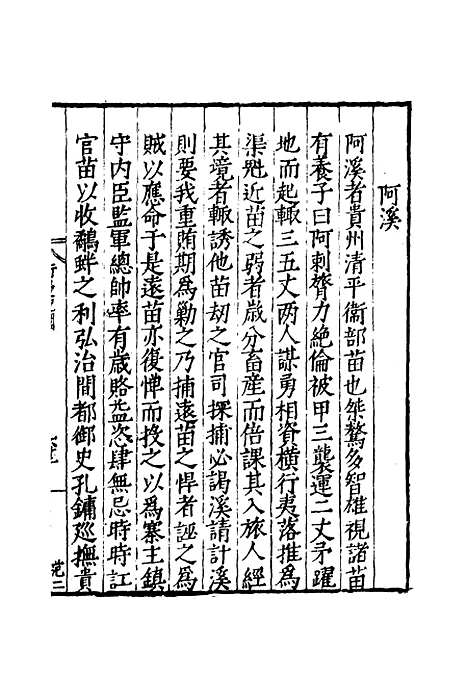 阿溪
阿溪者貴州清平衞部苗也桀驁多智雄視諸苗
有養子曰阿剌膂力絶倫被甲三襲運二丈矛躍
地而起輙三五丈两人謀勇相資橫行夷落推爲
渠魁近苗之弱者歲分畜産而倍課其入旅人經
其境者輙誘他苗刼之官司探捕必謁溪請計溪
則要我重賄期爲勦之乃捕遠苗之悍者誣之爲
賊以應命于是遠苗亦復憚而投之以爲寨主鎮
守内臣監軍總帥率有歲賂益恣肆無忌時時訌
官苗以收鷸蚌之利弘治間都御史孔鏞廵撫貴